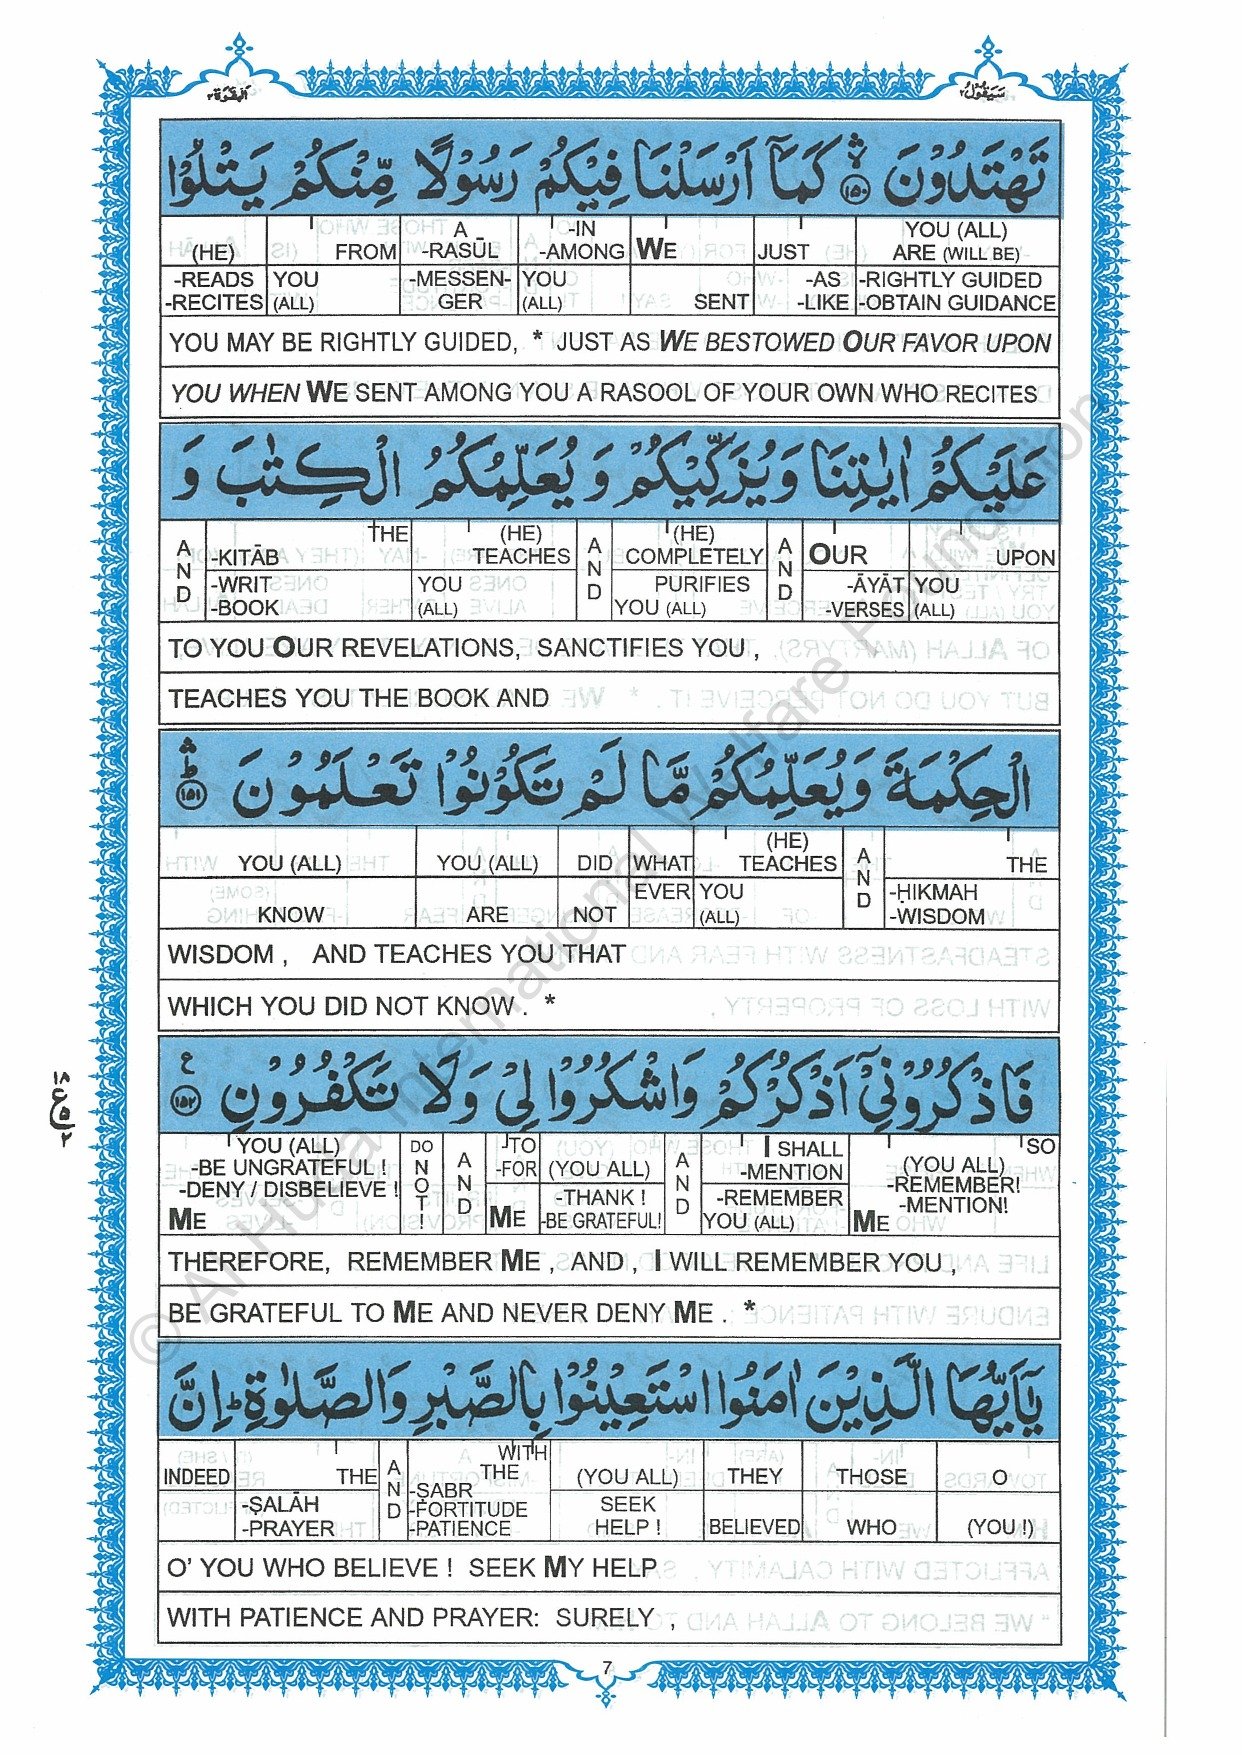 البقرة ٢
سيقول ٢
تَهْتَدُوْنَ ۝١٥٠ كَمَآ اَرْسَلْنَا فِيْكُمْ رَسُوْلًا مِّنْكُمْ يَتْلُوْا
(HE) FROM A -RASŪL -IN -AMONG WE JUST YOU (ALL) ARE (WILL BE)
-READS -RECITES YOU (ALL) -MESSEN- GER YOU (ALL) SENT -AS -LIKE -RIGHTLY GUIDED -OBTAIN GUIDANCE
YOU MAY BE RIGHTLY GUIDED, * JUST AS WE BESTOWED OUR FAVOR UPON
YOU WHEN WE SENT AMONG YOU A RASOOL OF YOUR OWN WHO RECITES
عَلَيْكُمْ اٰيٰتِنَا وَيُزَكِّيْكُمْ وَ يُعَلِّمُكُمُ الْكِتٰبَ وَ
AND THE (HE) TEACHES AND (HE) COMPLETELY AND OUR UPON
-KITĀB -WRIT -BOOK YOU (ALL) PURIFIES YOU (ALL) -ĀYĀT -VERSES YOU (ALL)
TO YOU OUR REVELATIONS, SANCTIFIES YOU ,
TEACHES YOU THE BOOK AND
الْحِكْمَةَ وَيُعَلِّمُكُمْ مَّا لَمْ تَكُوْنُوْا تَعْلَمُوْنَ ۝١٥١
YOU (ALL) YOU (ALL) DID WHAT (HE) TEACHES AND THE
KNOW ARE NOT EVER YOU (ALL) -ḤIKMAH -WISDOM
WISDOM , AND TEACHES YOU THAT
WHICH YOU DID NOT KNOW . *
فَاذْكُرُوْنِيْٓ اَذْكُرْكُمْ وَاشْكُرُوْا لِيْ وَلَا تَكْفُرُوْنِ ۝١٥٢ ع
١٨ ع ٥ ٢
YOU (ALL) DO NOT AND -TO -FOR (YOU ALL) AND I SHALL -MENTION SO (YOU ALL)
-BE UNGRATEFUL ! -DENY / DISBELIEVE ! ME ME -THANK ! -BE GRATEFUL! -REMEMBER YOU (ALL) -REMEMBER! -MENTION! ME
THEREFORE, REMEMBER ME , AND , I WILL REMEMBER YOU ,
BE GRATEFUL TO ME AND NEVER DENY ME . *
يٰٓاَيُّهَا الَّذِيْنَ اٰمَنُوا اسْتَعِيْنُوْا بِالصَّبْرِ وَالصَّلٰوةِ ؕ اِنَّ
INDEED THE AND WITH THE (YOU ALL) THEY THOSE O
-ṢALĀH -PRAYER -ṢABR -FORTITUDE -PATIENCE SEEK HELP ! BELIEVED WHO (YOU !)
O' YOU WHO BELIEVE ! SEEK MY HELP
WITH PATIENCE AND PRAYER: SURELY ,
7
© Al Huda International Welfare Foundation